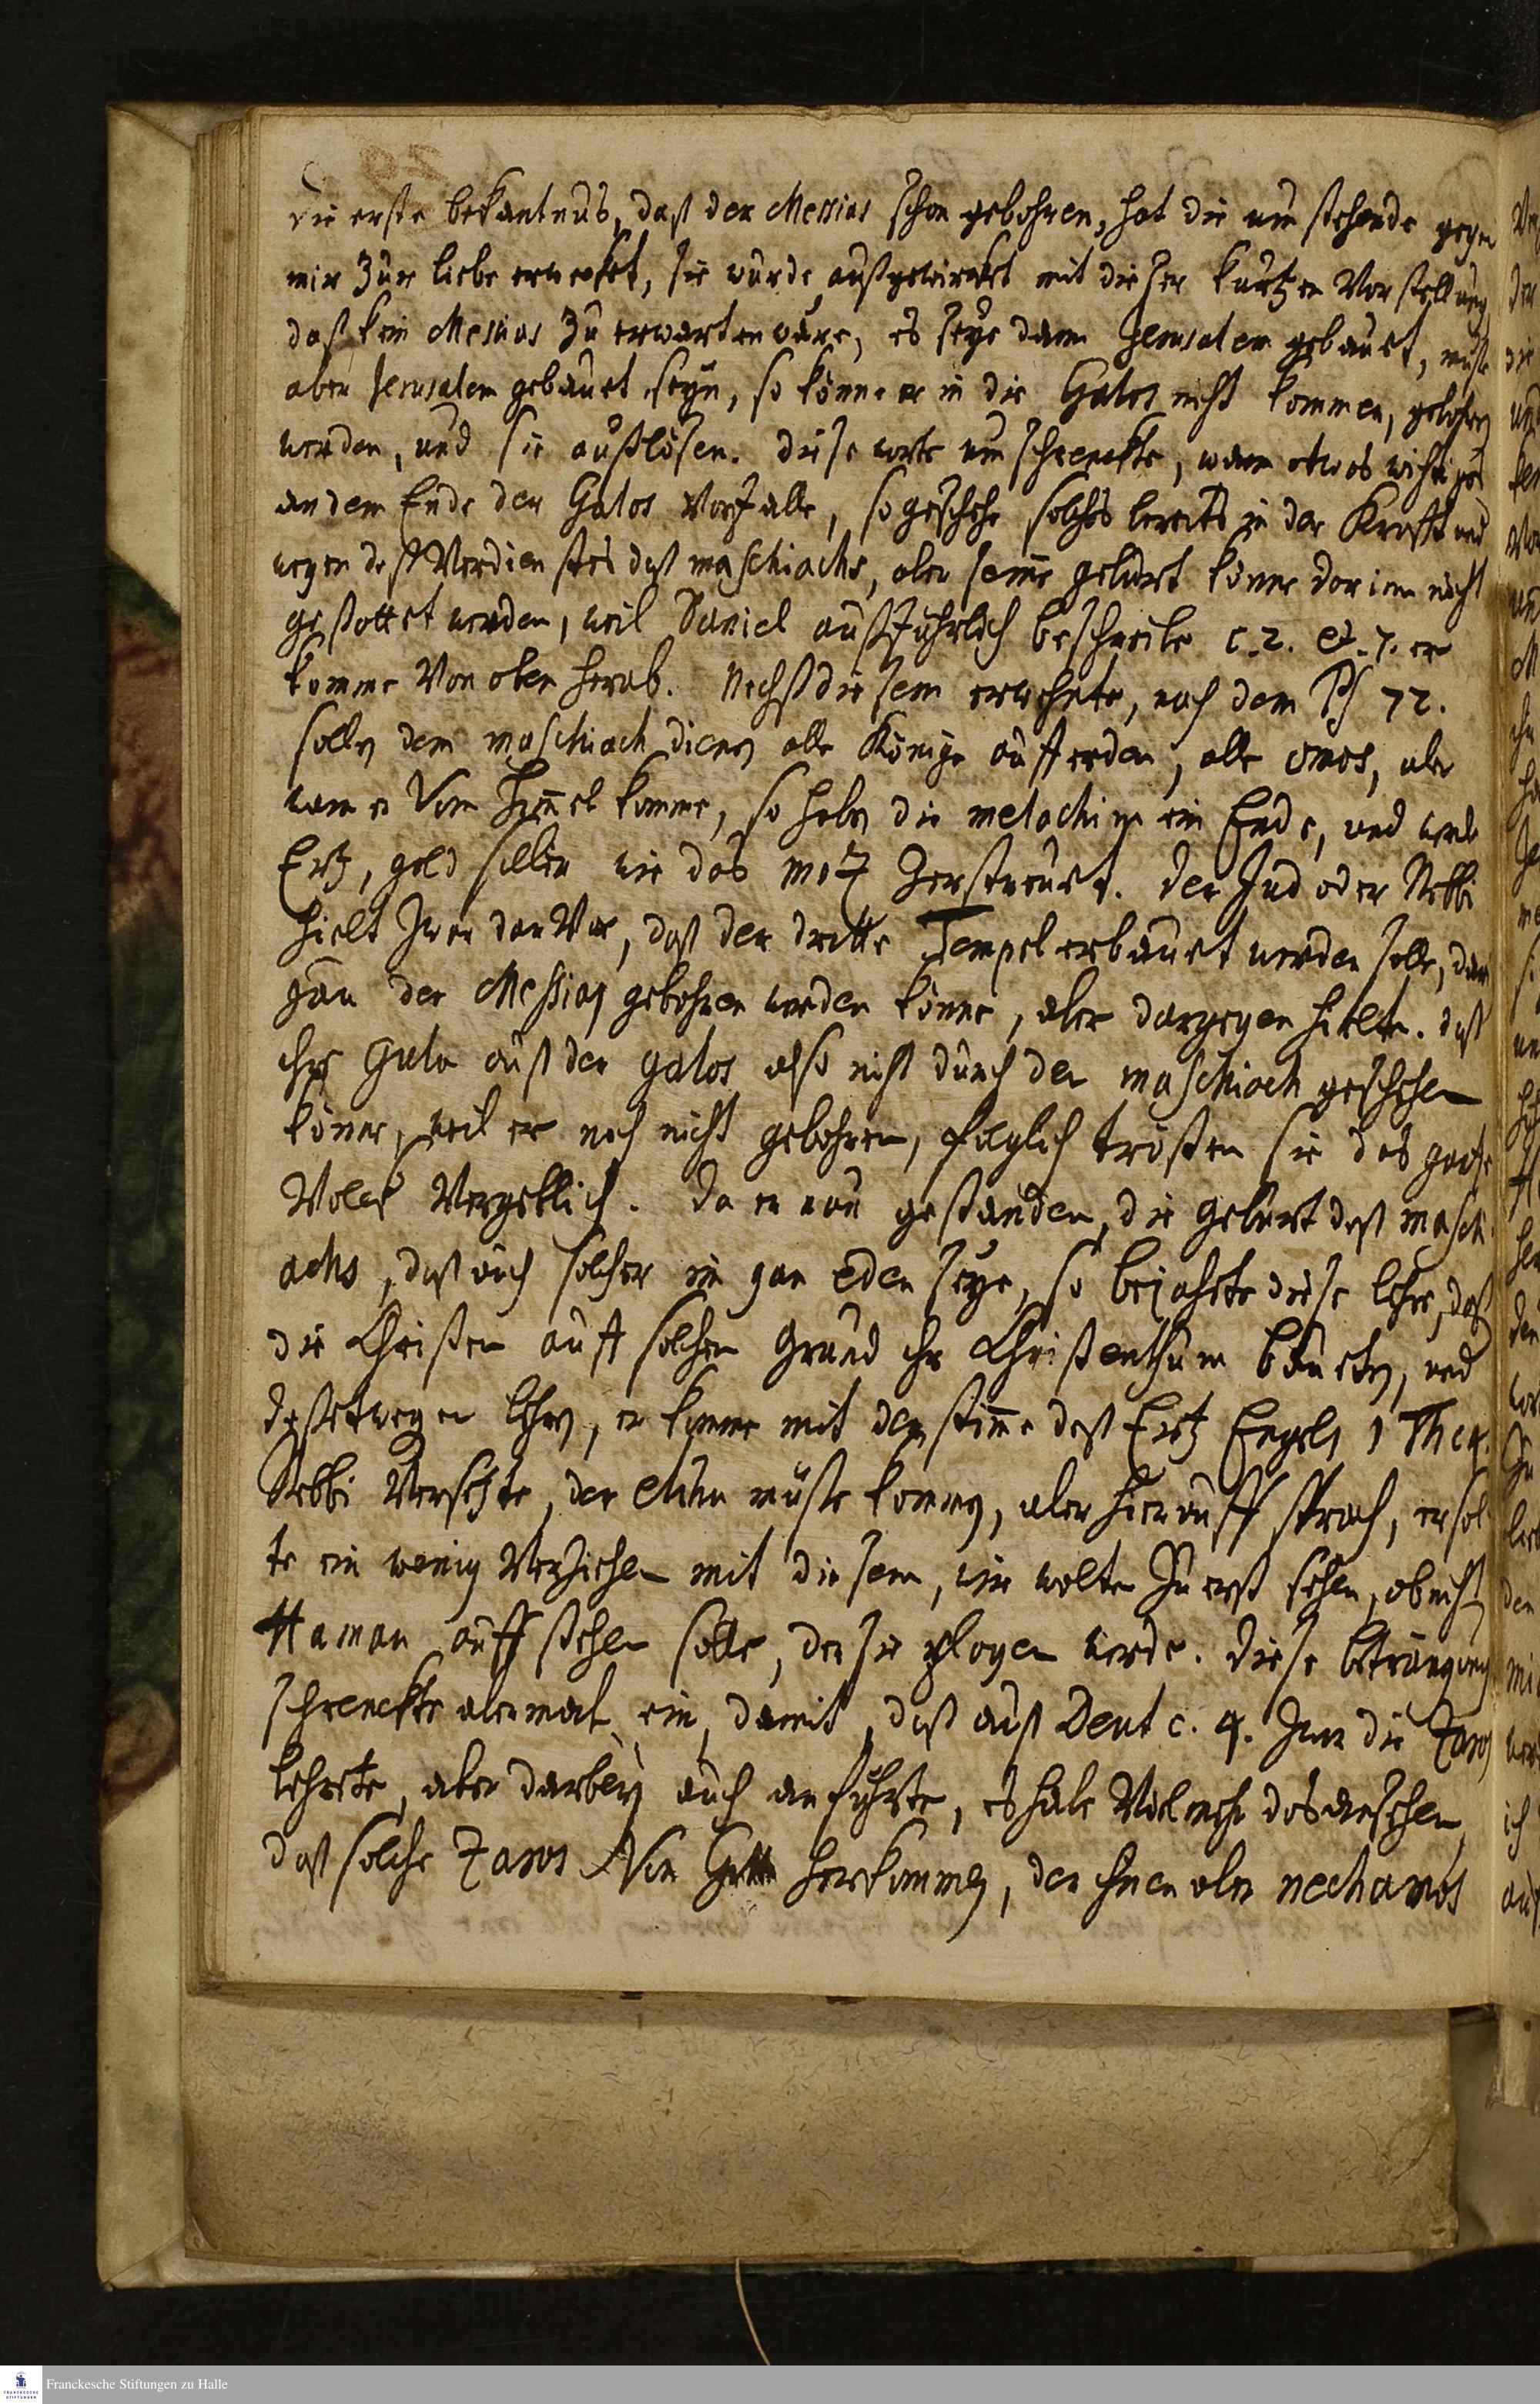 die erste bekantnus, daß der Messias schon gebohren, hat die um stehende gegen
mir zur liebe erweckt, sie wurde außgewirckt mit dieser kurtzen Vorstellung,
daß kein Messias zu erwarten wäre, es seye dann Jerusalem gebauet, müste
aber Jerusalem gebauet seyn, so könne er in die Galos nicht kommen, gebohren
werden, und sie außlösen. diese worte umschrenckte, wann etwas wichtiges
an dem Ende der Galos vorfalle, so geschehe solches bereits in der Krafft und
wegen deß Verdienstes deß maschiachs, aber seine geburt könne darinn nicht
gestattet werden, weil Daniel außführlich beschreibe c. 2. et. 7. er
komme von oben herab. Nechst diesem erwehnte, nach dem Ps 72.
sollen dem maschiach dienen alle Könige auff erden, alle omos, aber
wann er vom Himmel komme, so haben die melochim ein Ende, und werde
Ertz, gold silber wie das moz zerstreuet. der Jud oder Rebbi
hielt zwar darvor, daß der dritte Tempel erbauet werden solle, dar
der Messias gebohren werden könne, aber dargegen hielte. daß
ihre Gula auß der galos also nicht durch den maschiach geschehen
könne, weil er noch nicht gebohren, folglich trösten sie das grose
Volck vergeblich. da er nun gestanden, die geburt deß maschi
achs, daß auch solcher im gan eden seye, so bejahete diese lehre, daß
die Christen auff solchen Grund ihr Christenthum baueten, und
deßetwegen lehren, er komme mit der stimme deß Ertz Engels 1 Thes. 4.
Rebbi versetzte, der Elihu müste kommen, aber hierauff sprach, er sol
te ein wenig verziehen mit diesem, wir wolten zu erst sehen, ob nicht
Haman auffstehen solle, der sie plagen werde. diese betrangung
schrenckte abermal ein, damit, daß auß Deut c. 4. zwar die Zaros
lehrete, aber darbey auch anführte, es habe vielmehr das ansehen,
daß solche Zaros von Gott herkommen, der ihnen aber nechamos